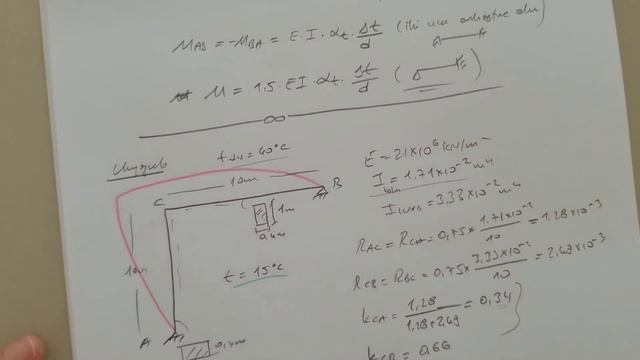 M_AB = -M_BA = E.I.α_t.Δt/d (iki ucu ankastre
M = 1.5.EI.α_t.Δt/d
∞
t = 40°C
10m
C
B
1m
0,4m
t = 15°C
10m
A
0,4m
E = 21×10⁶ kN/m
I = 1.71×10⁻² m4
= 3,33×10⁻² m4
R_AC = R_CA = 0,75×1.71×10⁻²/10 = 1.28×10⁻³
R_CB = R_BC = 0,75×3,33×10⁻²/10 = 2,49×10⁻³
k_CA = 1,28/1,28+2,49 = 0,34
k_CB = 0,66